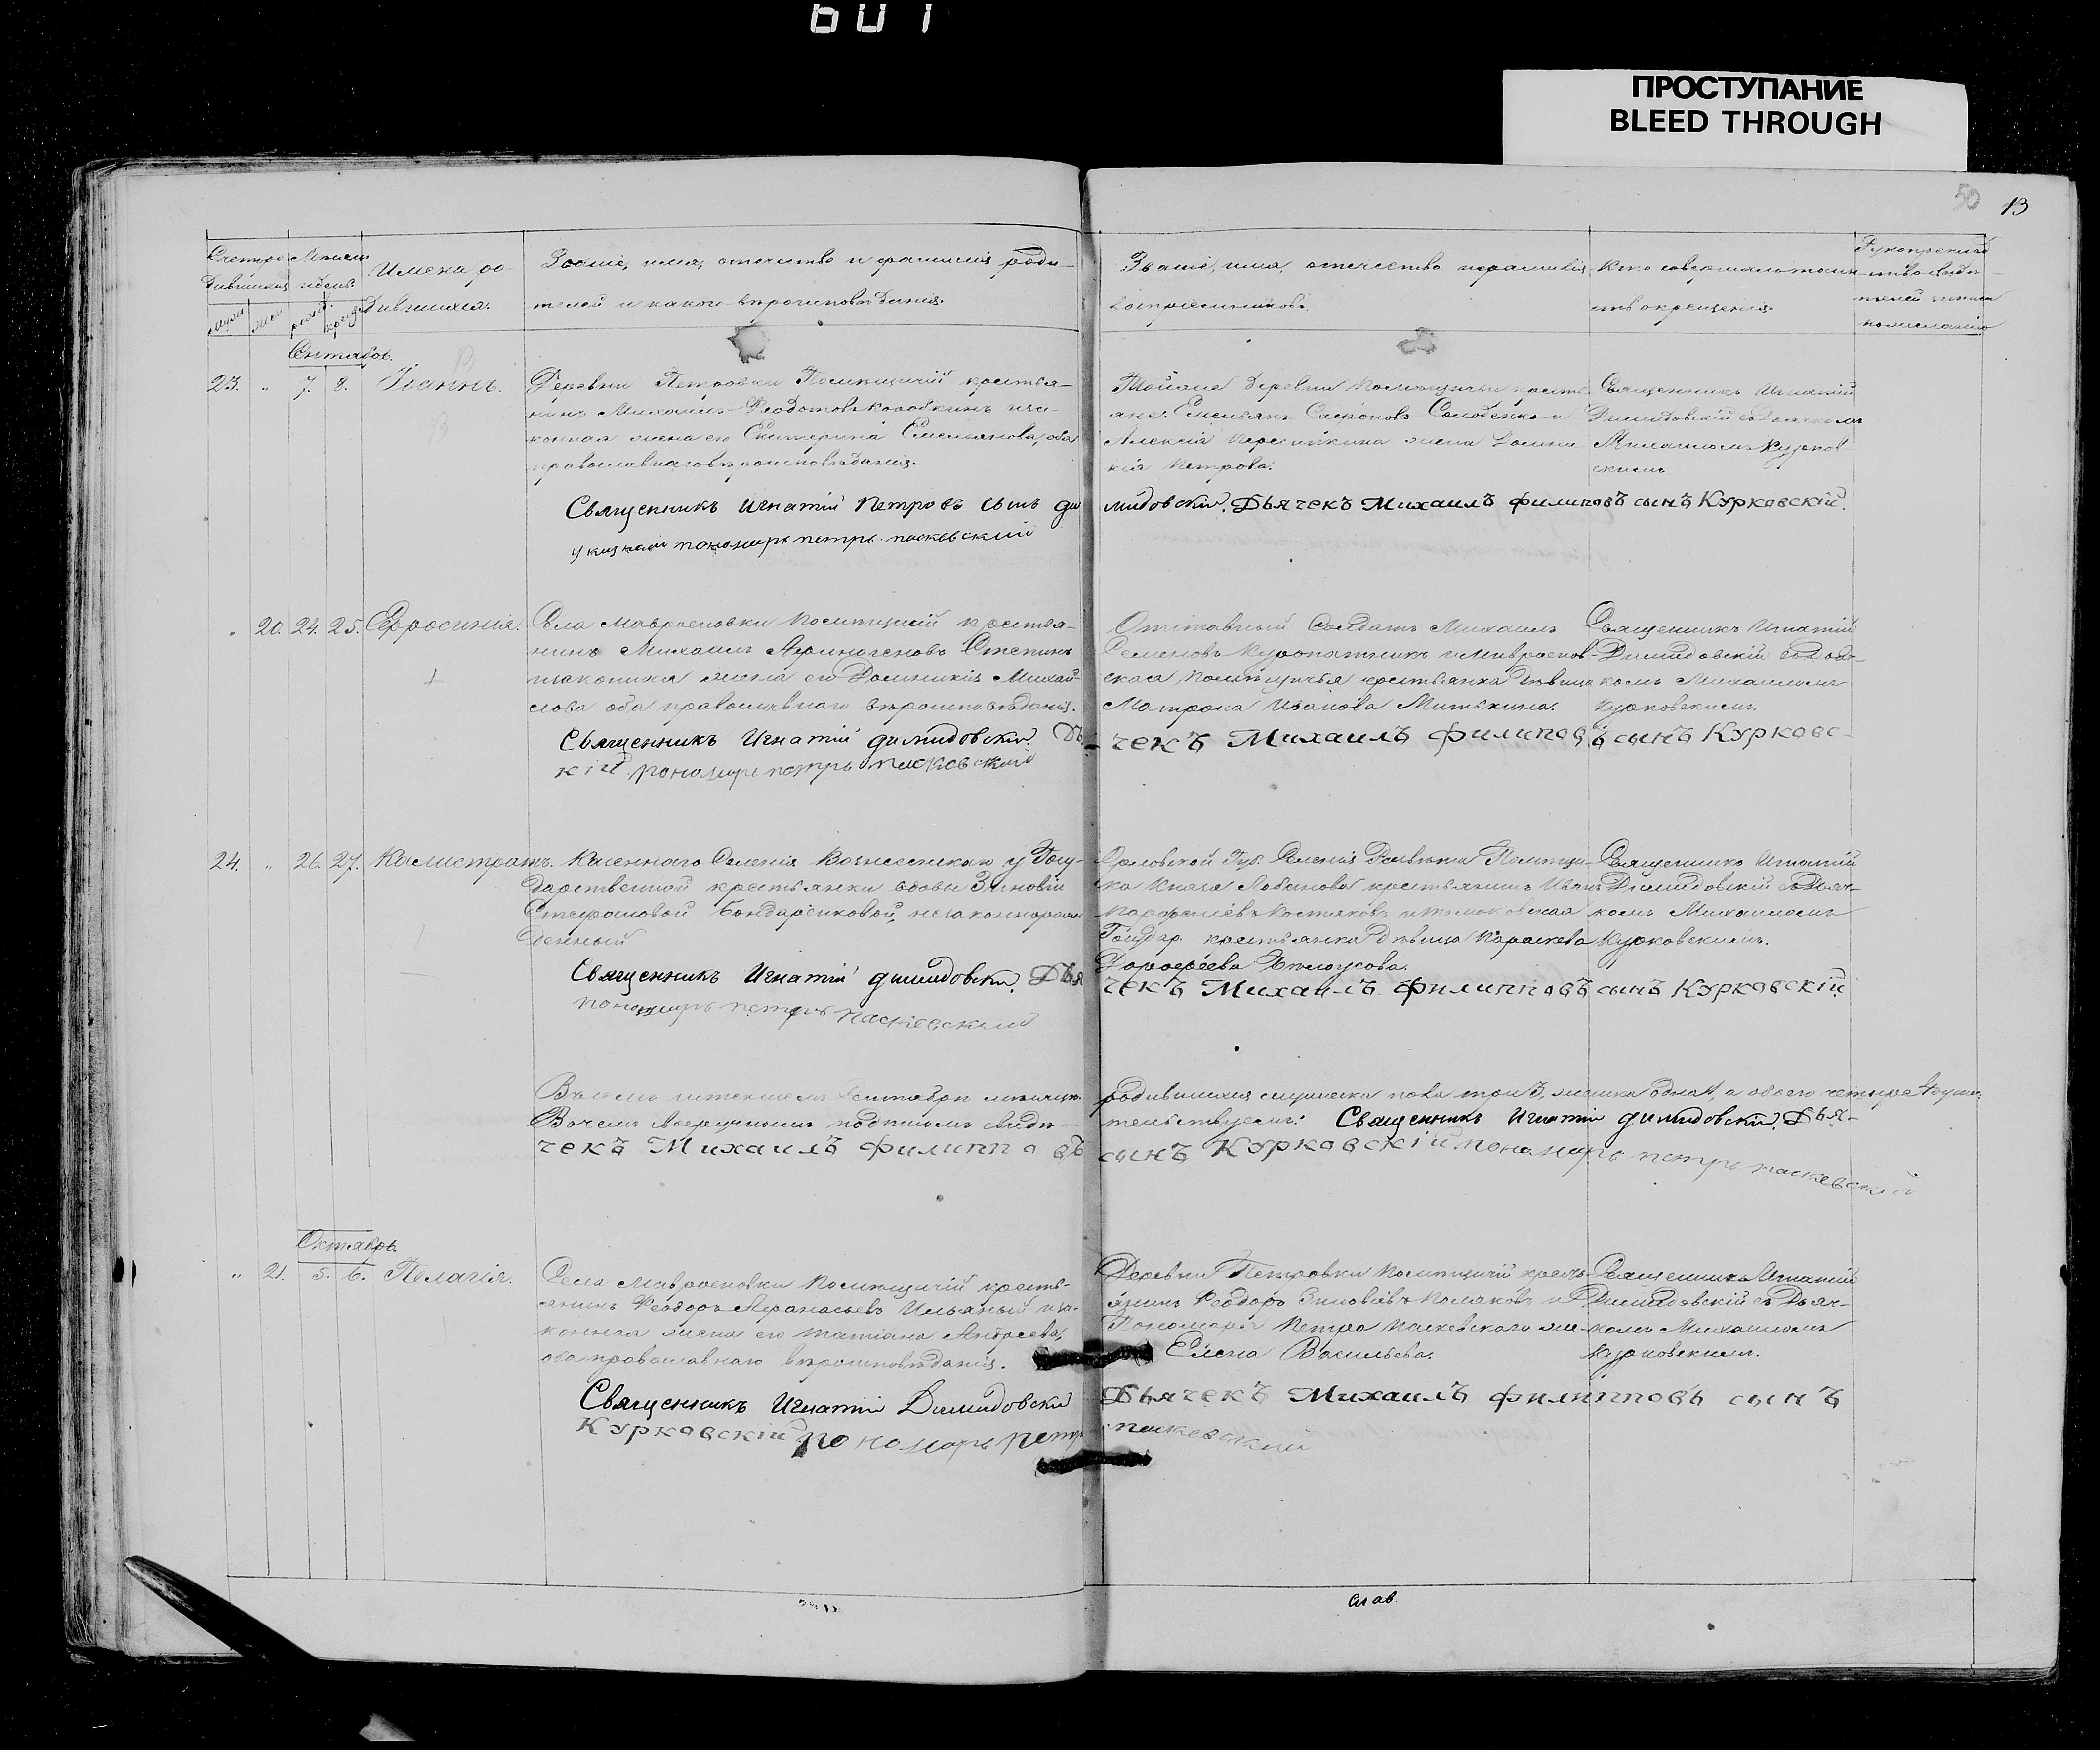 601
ПРОСТУПАНИЕ
BLEED THROUGH
50 13
Счетъ ро-
дившихся
Месяцъ
и день
Имена ро-
дившихся.
Званіе, имя, отчество и фамилія роди-
телей и какого вѣроисповѣданія.
Званіе, имя, отчество и фамилія
воспріемниковъ.
Кто совершалъ таин-
ство крещенія.
Рукоприклад
ство свидѣ-
телей записи
по желанію
Сентябрь.
23. " 7. 8. Іоаннъ.
Деревни Петровки Помѣщичій крестья-
нинъ Михаилъ Феодотовъ Коробкинъ и за-
конная жена его Екатерина Емельянова, оба
православнаго вѣроисповѣданія.
Тойже деревни помѣщичьи кресть-
яне: Емельянъ
Алексія жена Домни-
кія Петрова.
Священникъ Игнатій
Димидовскій съ Дьячкомъ
Михаиломъ Курков-
скимъ
Священникъ Игнатій Петровъ сынъ Ди
мидовскій. Дьячекъ Михаилъ Филиповъ сынъ Курковскій.
указный пономарь петръ пасковский
" 20. 24. 25. Ефросинія.
Села Мавроеновки Помѣщичій крестья-
нинъ Михаилъ Степинъ
и законная жена его Домникія Михай-
лова оба православнаго вѣроисповѣданія.
Отставный Солдатъ Михаилъ
Семеновъ Куропятникъ и Мавроенов-
ская помѣщичья крестьянка дѣвица
Матрона Иванова Митькина.
Священникъ Игнатій
Димидовскій съ Дьяч-
комъ Михаиломъ
Курковскимъ.
Священникъ Игнатій Димидовскій. Дь
ячекъ Михаилъ Филиповъ сынъ Курковс-
кій пономарь петръ пасковский
24. " 26. 27. Калистратъ.
Казеннаго Селенія Вознесенскаго у Госу-
дарственной крестьянки вдовы Зиновіи
Стефановой Бондаренковой, незаконнорож-
денный
Орловской Губ. Селенія Помѣщи-
ка Князя Лобанова крестьянинъ Иванъ
Государ. крестьянка дѣвица Параскева
Дорофеева Бѣлоусова.
Священникъ Игнатій
Димидовскій съ Дьяч-
комъ Михаиломъ
Курковскимъ.
Священникъ Игнатій Димидовскій. Дья
чекъ Михаилъ Филипповъ сынъ Курковскій
пономарь петръ паскевский
Въ семъ истекшемъ Сентябрѣ мѣсяцѣ
родившихся мужеска пола три 3, женска одна 1, а обоего четыре 4 души.
Въ чемъ своеручнымъ подписомъ свидѣ-
тельствуемъ: Священникъ Игнатій Димидовскій. Дья-
чекъ Михаилъ Филипповъ
сынъ Курковскій пономарь петръ паскевский
Октябрь.
" 21. 5. 6. Пелагія.
Села Мавроеновки Помѣщичій кресть-
янинъ Феодоръ Афанасьевъ и за-
конная жена его Татіана Андреева,
оба православнаго вѣроисповѣданія.
Деревни Петровки Помѣщичій кресть-
янинъ Феодоръ Зиновіевъ Поляковъ и
Пономаря Петра Паскевскаго же-
Елена Васильева.
Священникъ Игнатій
Димидовскій съ Дьяч-
комъ Михаиломъ
Курковскимъ.
Священникъ Игнатій Димидовскій
Дьячекъ Михаилъ Филипповъ сынъ
Курковскій пономарь петръ
паскевский